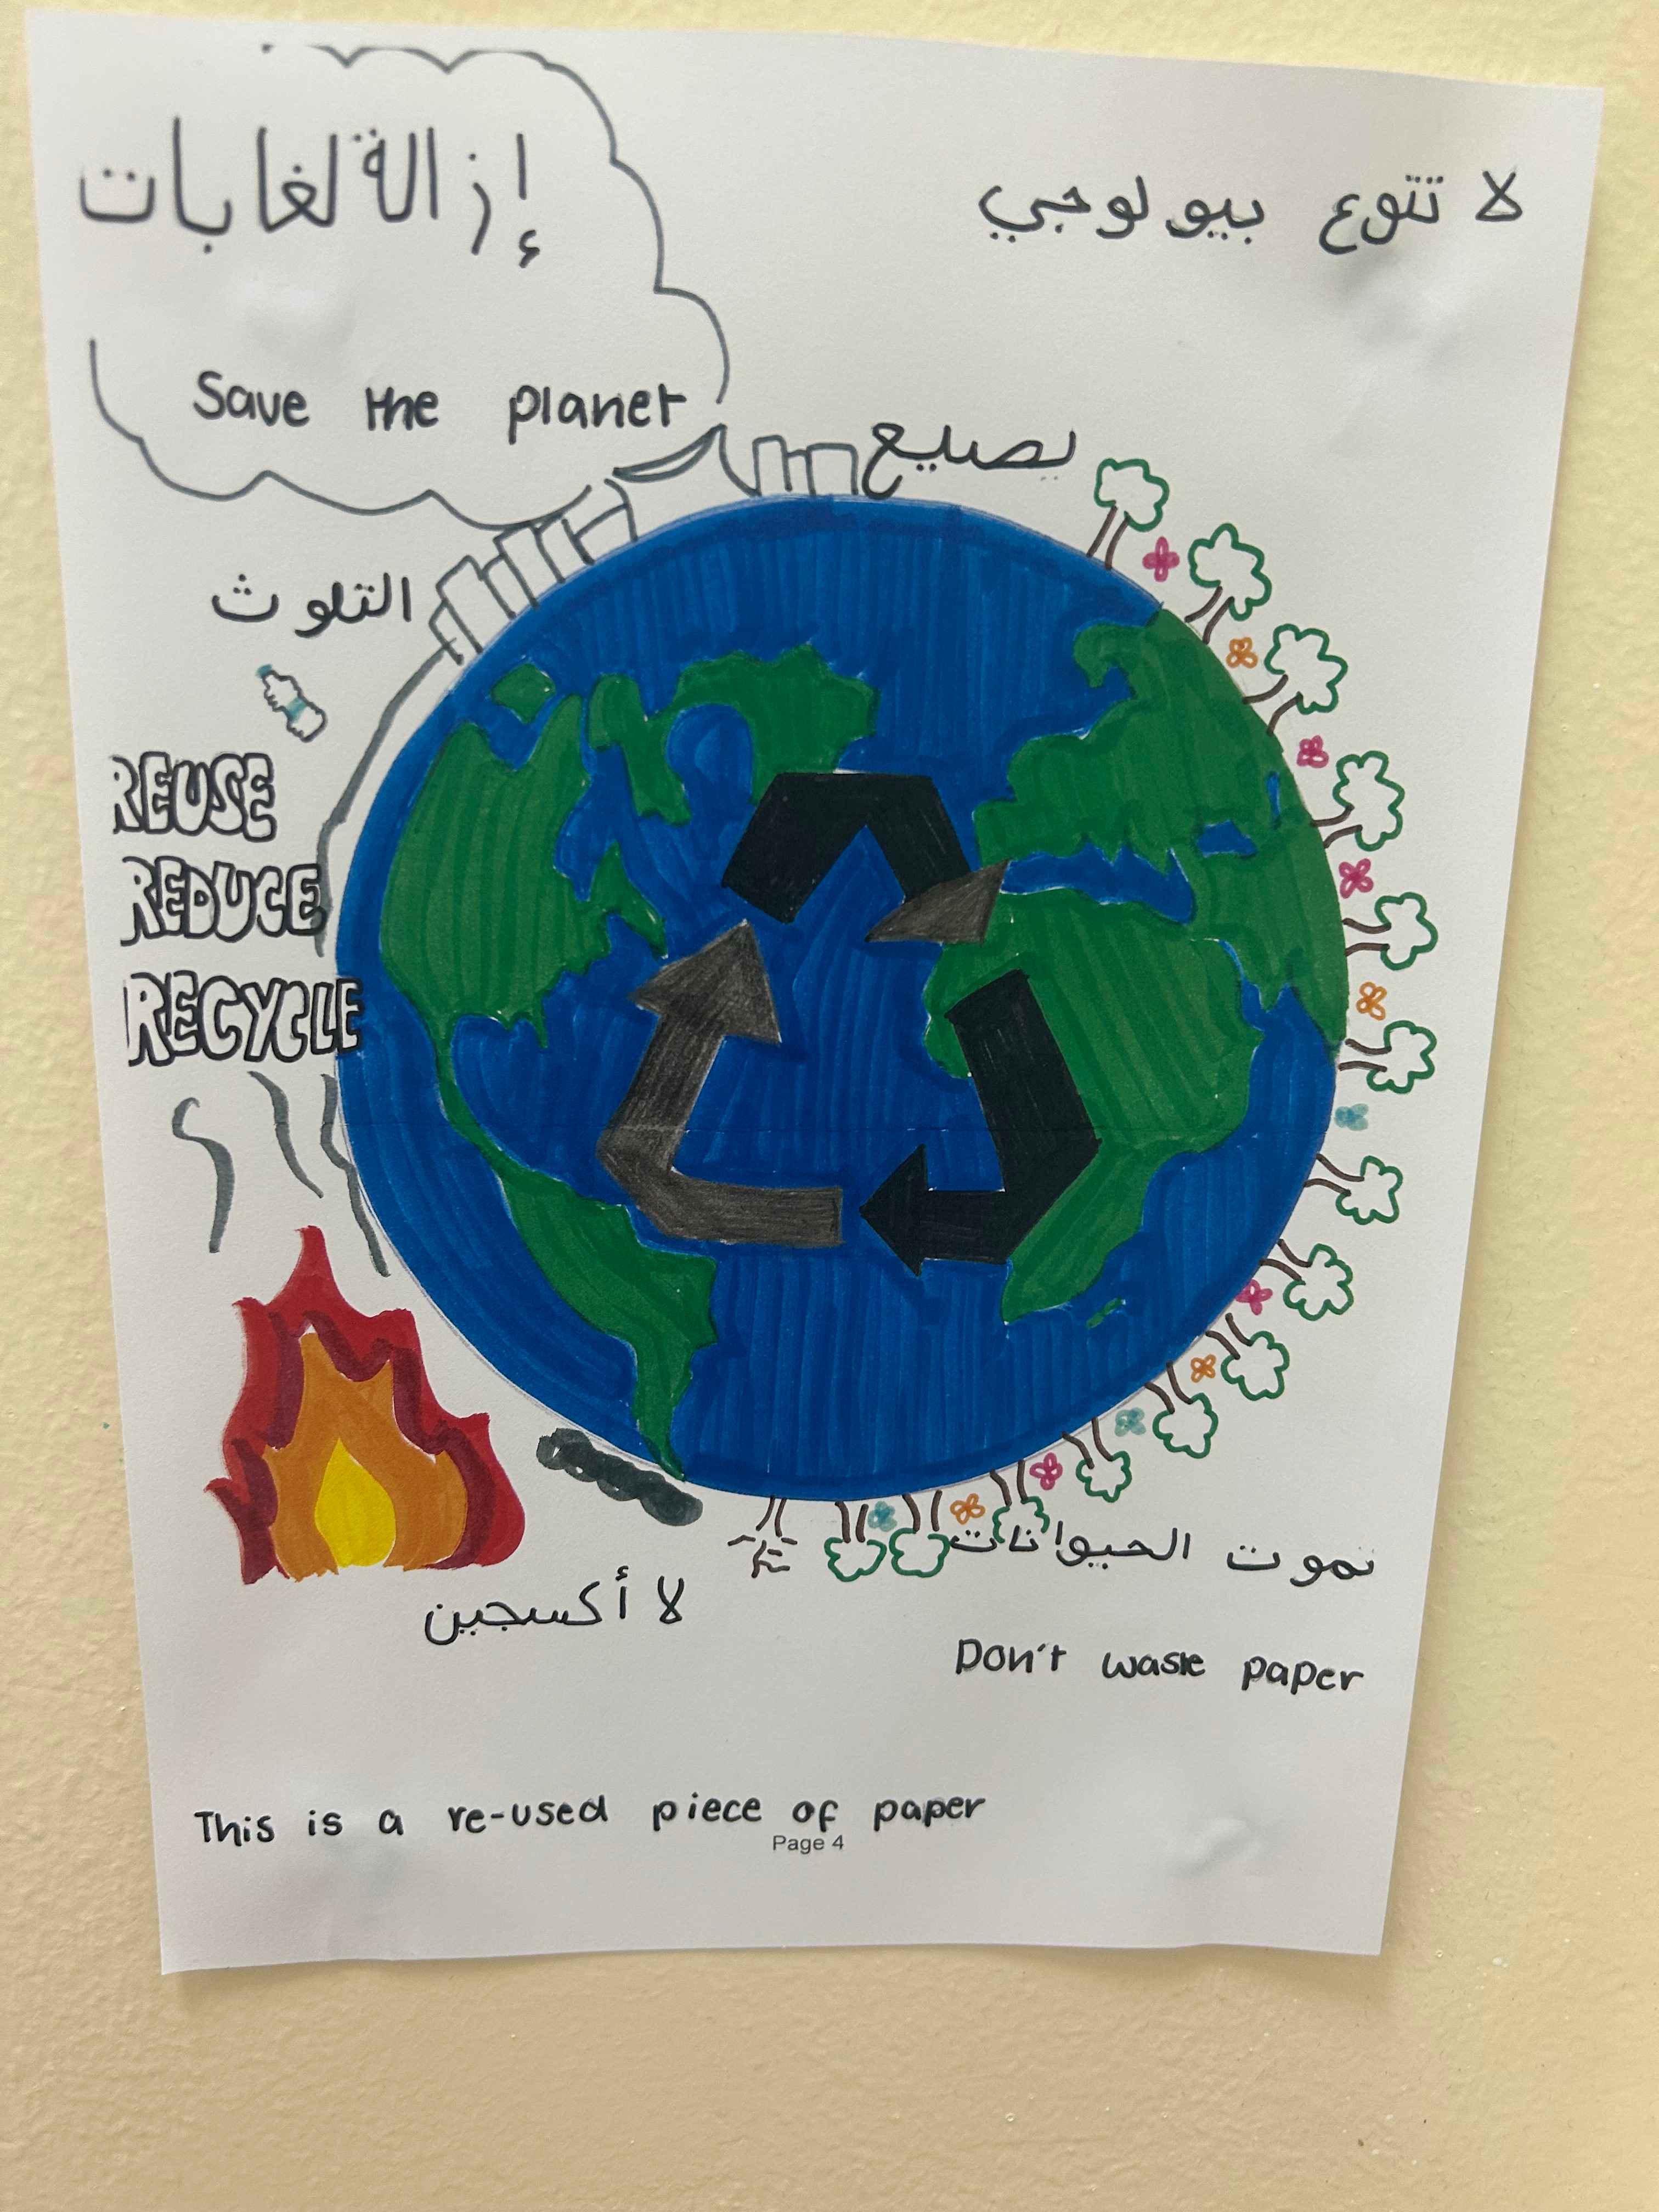 إزالة لغابات
لا تتوع بيولوجي
Save the planet
التلوث
REUSE
REDUCE
RECYCLE
لا أكسجين
نموت الحيوانات
Don't waste paper
This is a re-used piece of paper
Page 4